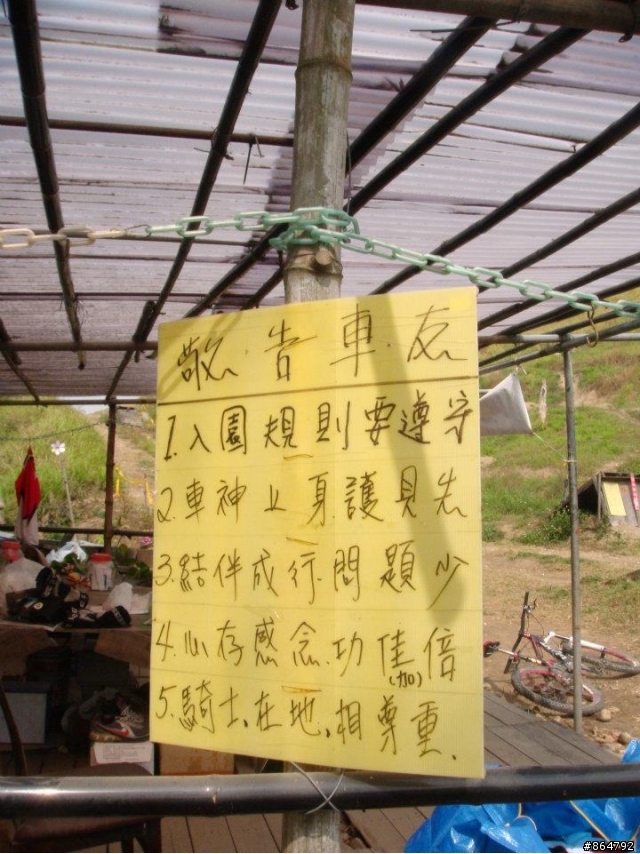 敬告車友
1.入園規則要遵守
2.車神上身.護具先
3.結伴成行.問題少
4.心存感念.功佳倍
(加)
5.騎士.在地.相尊重.
#864792